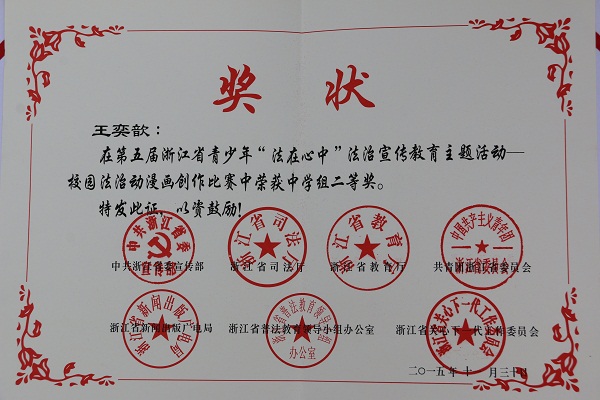 奖状
王奕歆：
在第五届浙江省青少年“法在心中”法治宣传教育主题活动—
校园法治动漫画创作比赛中荣获中学组二等奖。
特发此证，以资鼓励！
中共浙江省委宣传部
浙江省司法厅
浙江省教育厅
共青团浙江省委员会
浙江省新闻出版广电局
浙江省普法教育领导小组办公室
浙江省关心下一代工作委员会
二〇一五年十一月三十日
中共浙江省委
宣传部
浙江省司法厅
浙江省教育厅
中国共产主义青年团
浙江省委员会
浙江省新闻出版广电局
浙江省普法教育领导小组
办公室
浙江省关心下一代工作委员会